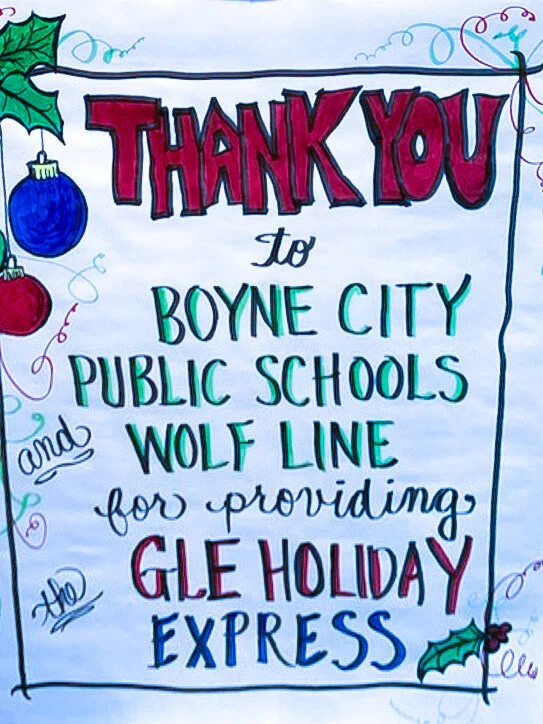 THANK YOU
to
BOYNE CITY
PUBLIC SCHOOLS
and WOLF LINE
for providing
the GLE HOLIDAY
EXPRESS